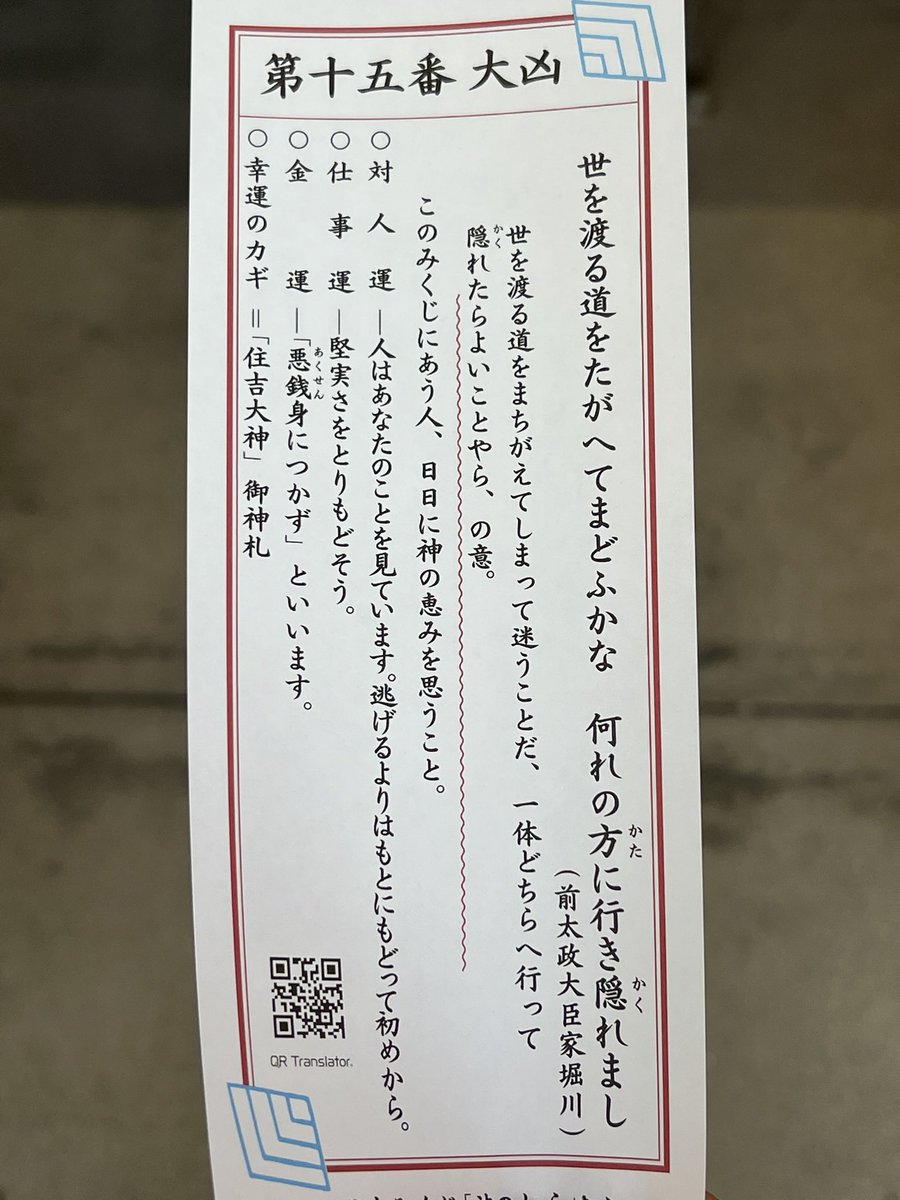 第十五番 大凶
世を渡る道をたがへてまどふかな 何れの方に行き隠れまし
かた
かく
(前太政大臣家堀川)
世を渡る道をまちがえてしまって迷うことだ、一体どちらへ行って
隠れたらよいことやら、の意。
かく
このみくじにあう人、日日に神の恵みを思うこと。
○対人運―人はあなたのことを見ています。逃げるよりはもとにもどって初めから。
○仕事運―堅実さをとりもどそう。
○金運―「悪銭身につかず」といいます。
あくせん
○幸運のカギ=「住吉大神」御神札
QR Translator.